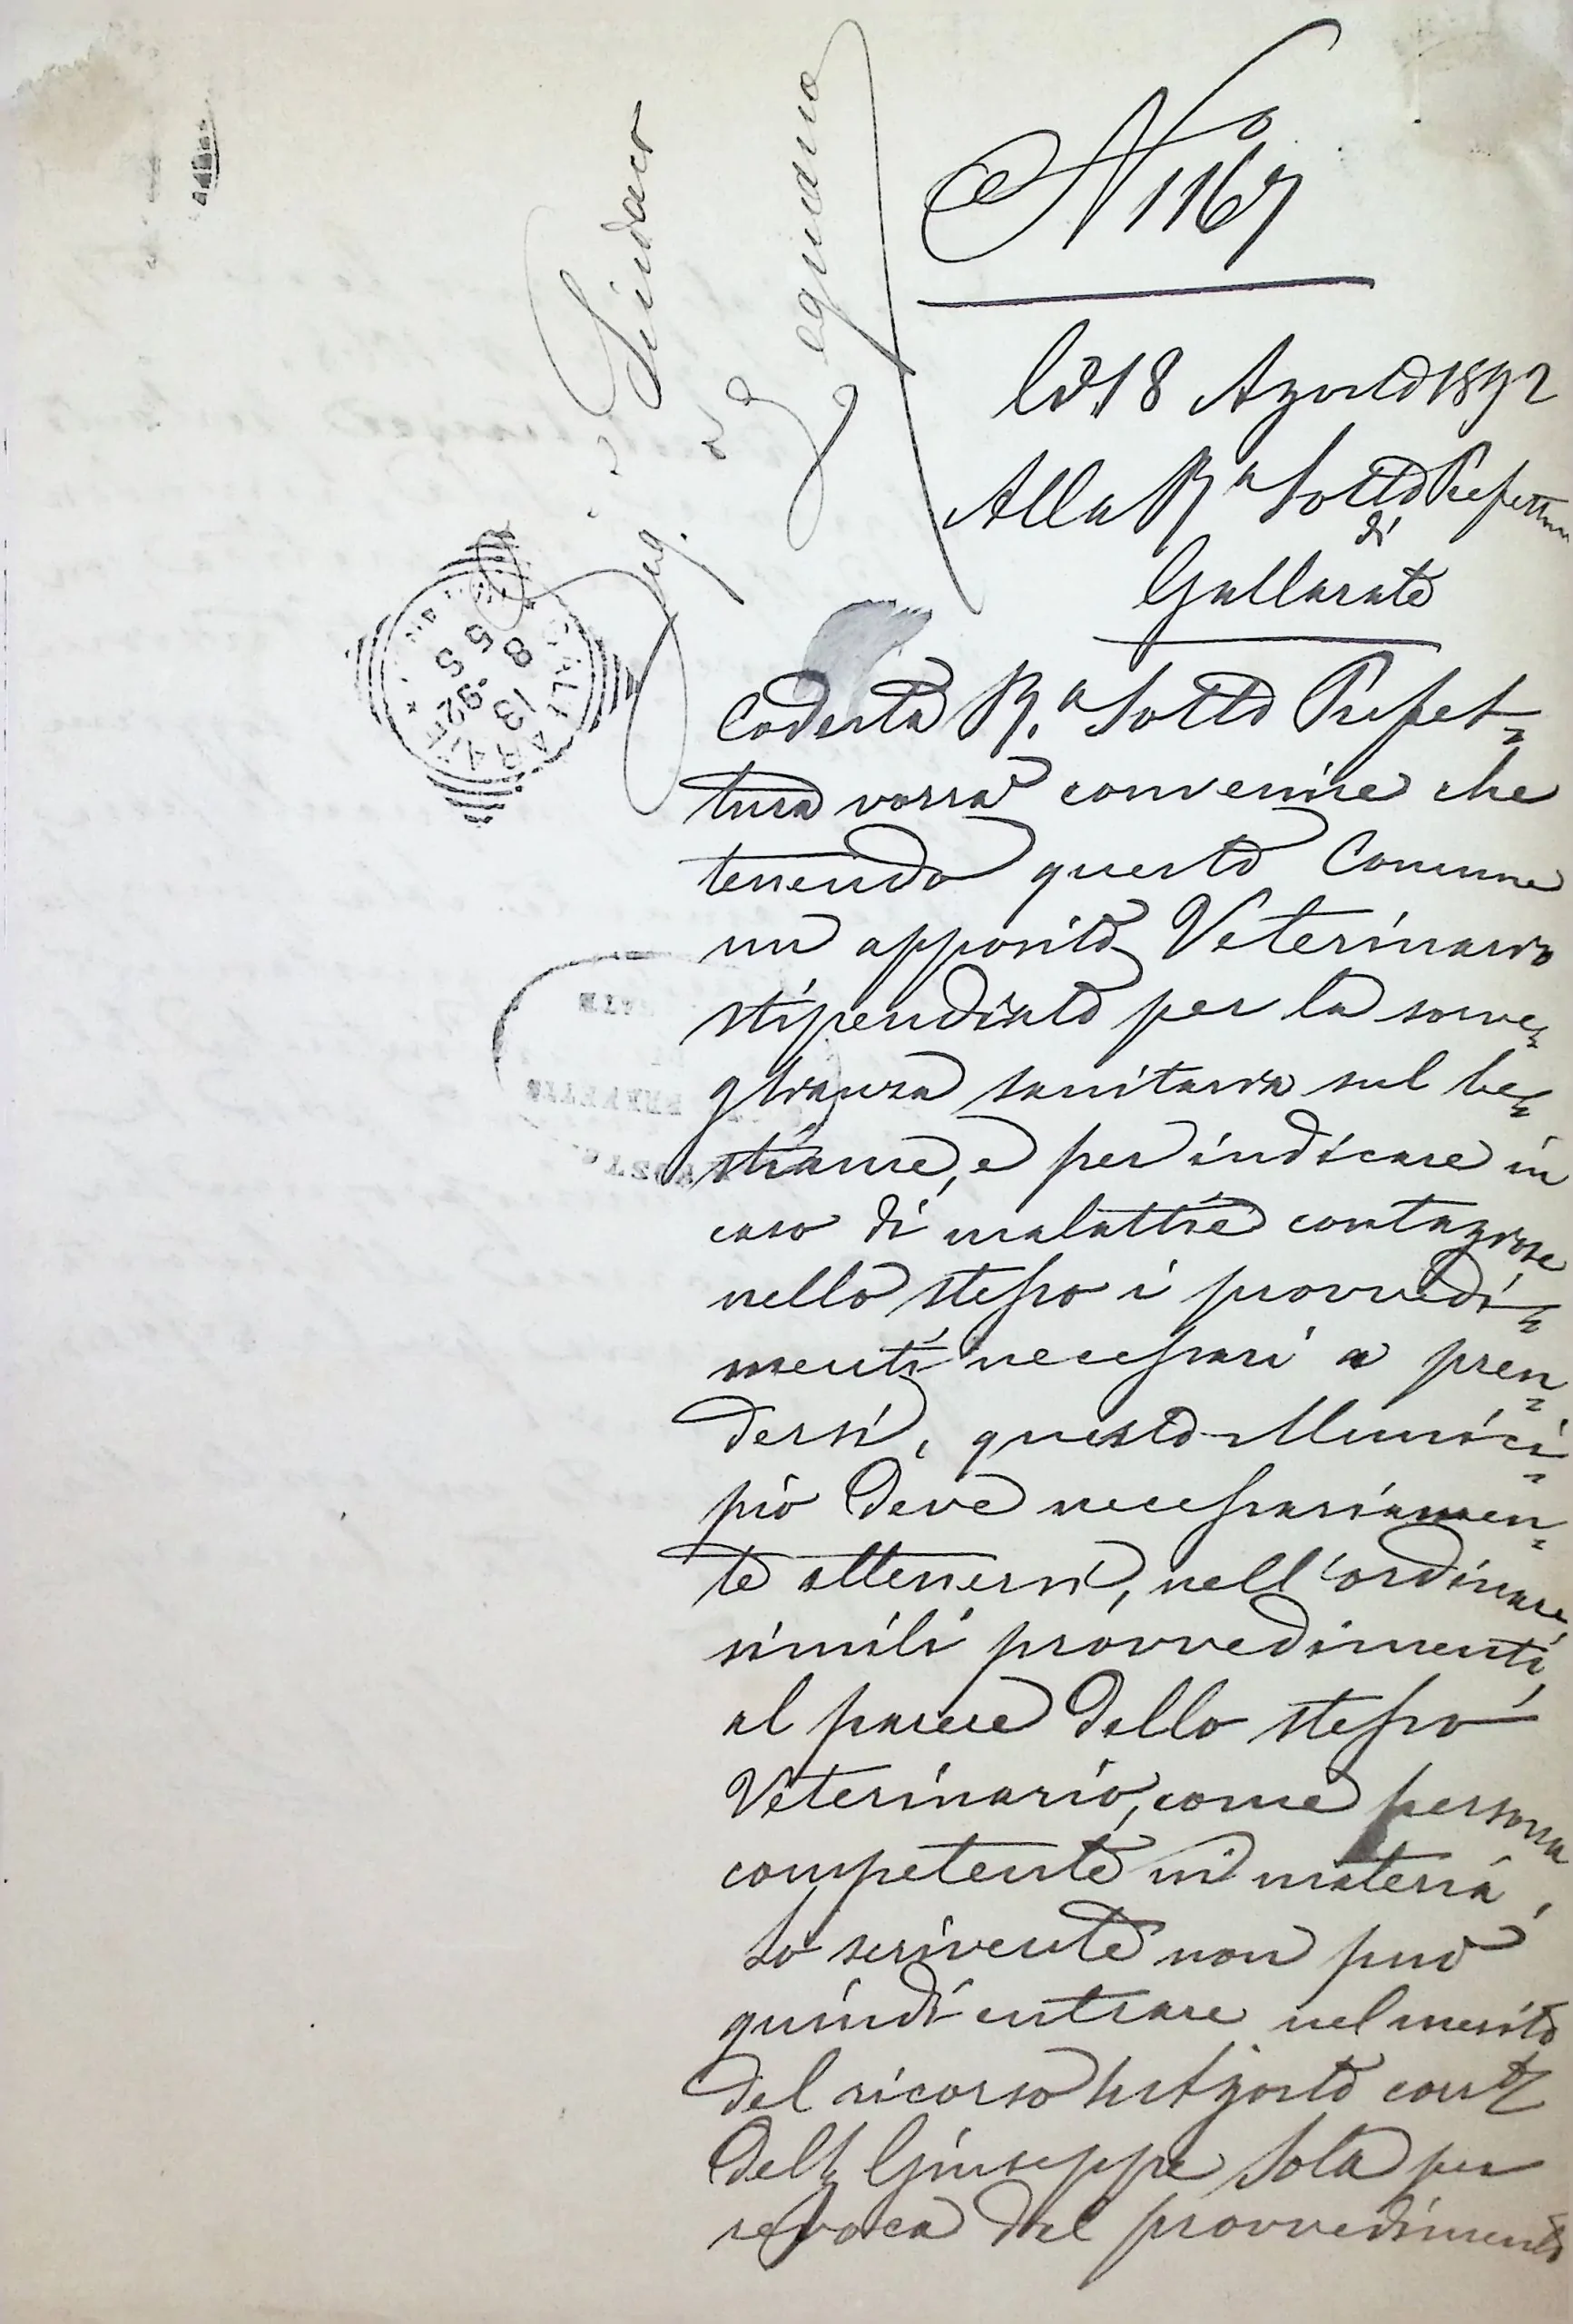 Sig. Sindaco
di
Legnano
No 1167
lì 18 Agosto 1892
Alla Ra Sotto Prefettura
di
Gallarate
Codesta R.a Sotto Prefet=
tura vorrà convenire che
tenendo questo Comune
un apposito Veterinario
stipendiato per la sorve=
glianza sanitaria sul be=
stiame, e per indicare in
caso di malattie contagiose
nello stesso i provvedi=
menti necessari a pren=
dersi, questo Munici=
pio deve necessariamen=
te attenersi, nell'ordinare
simili provvedimenti,
al parere dello stesso
Veterinario, come persona
competente in materia,
Lo scrivente non può
quindi entrare nel merito
del ricorso Agosto corrte
del Giuseppe Sola per
revoca del provvedimento
GALLARATE
8 S
13
92